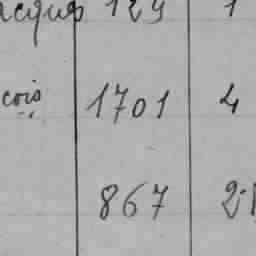 acques 129 1
cois 1701 4
867 2